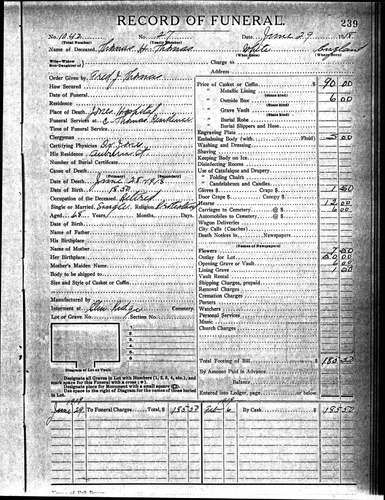 RECORD OF FUNERAL.
239
No. 1042 No. 27 Date June 29 1918
(Total Number) (Yearly Number)
Name of Deceased Thomas H. Thomas White England
(What Race) (Where Born)
Wife—Widow
Son—Daughter of
Charge to
Address
Order Given by Fred J. Thomas
How Secured
Date of Funeral
Residence
Place of Death Jones Hospital
Funeral Services at
Time of Funeral Service
Clergyman
Certifying Physician Dr. Jones
His Residence Auburn St.
Number of Burial Certificate
Cause of Death
(Primary) (Secondary)
Date of Death June 28-1918
Date of Birth 1850
Occupation of the Deceased Retired
Single or Married Single Religion Protestant
Aged 68 Years, Months, Days.
Date of Birth
Name of Father
His Birthplace
Name of Mother
Her Birthplace
Mother's Maiden Name
Body to be shipped to
Size and Style of Casket or Coffin
Manufactured by
Interment at Glen Ridge Cemetery.
Lot or Grave No. Section No.
1
2
3
4
5
6
Diagram of Lot or Vault.
Designate all Graves in Lot with Numbers (1, 2, 3, 4, etc.), and
mark space for this Funeral with a cross
Designate place for Monument with a small square
Use space to the right of Diagram for the names of those buried
in Lot.
Price of Casket or Coffin $ 90 00
" Metallic Lining
(State kind)
" Outside Box 6 00
(State kind)
" Grave Vault
(State kind)
" Burial Robe
(State kind)
" Burial Slippers and Hose
Engraving Plate
Embalming Body (with Fluid) 5 00
Washing and Dressing
Shaving
Keeping Body on Ice
Disinfecting Rooms
Use of Catafalque and Drapery
" Folding Chairs
" Candelabrum and Candles
Gloves $ Fans $ 1 50
Door Crape $ Canopy $
Hearse 12 00
Carriages to Cemetery @ $ 6 00
Automobiles to Cemetery @ $
Wagon Deliveries
City Calls (Coacher)
Death Notices in Newspapers
(Names of Newspapers)
Flowers 7 50
Outlay for Lot 50 00
Opening Grave or Vault
Lining Grave 1 00
Vault Rental
Shipping Charges, prepaid
Removal Charges
Cremation Charges
Porters
Watchers
Personal Services
Music
Church Charges
Total Footing of Bill $ 185 50
By Amount Paid in Advance
Balance
Entered into Ledger, page or below.
1918 1919
June 29 To Funeral Charges Total, $ 185 50 Feb 6 By Cash $ 185 50